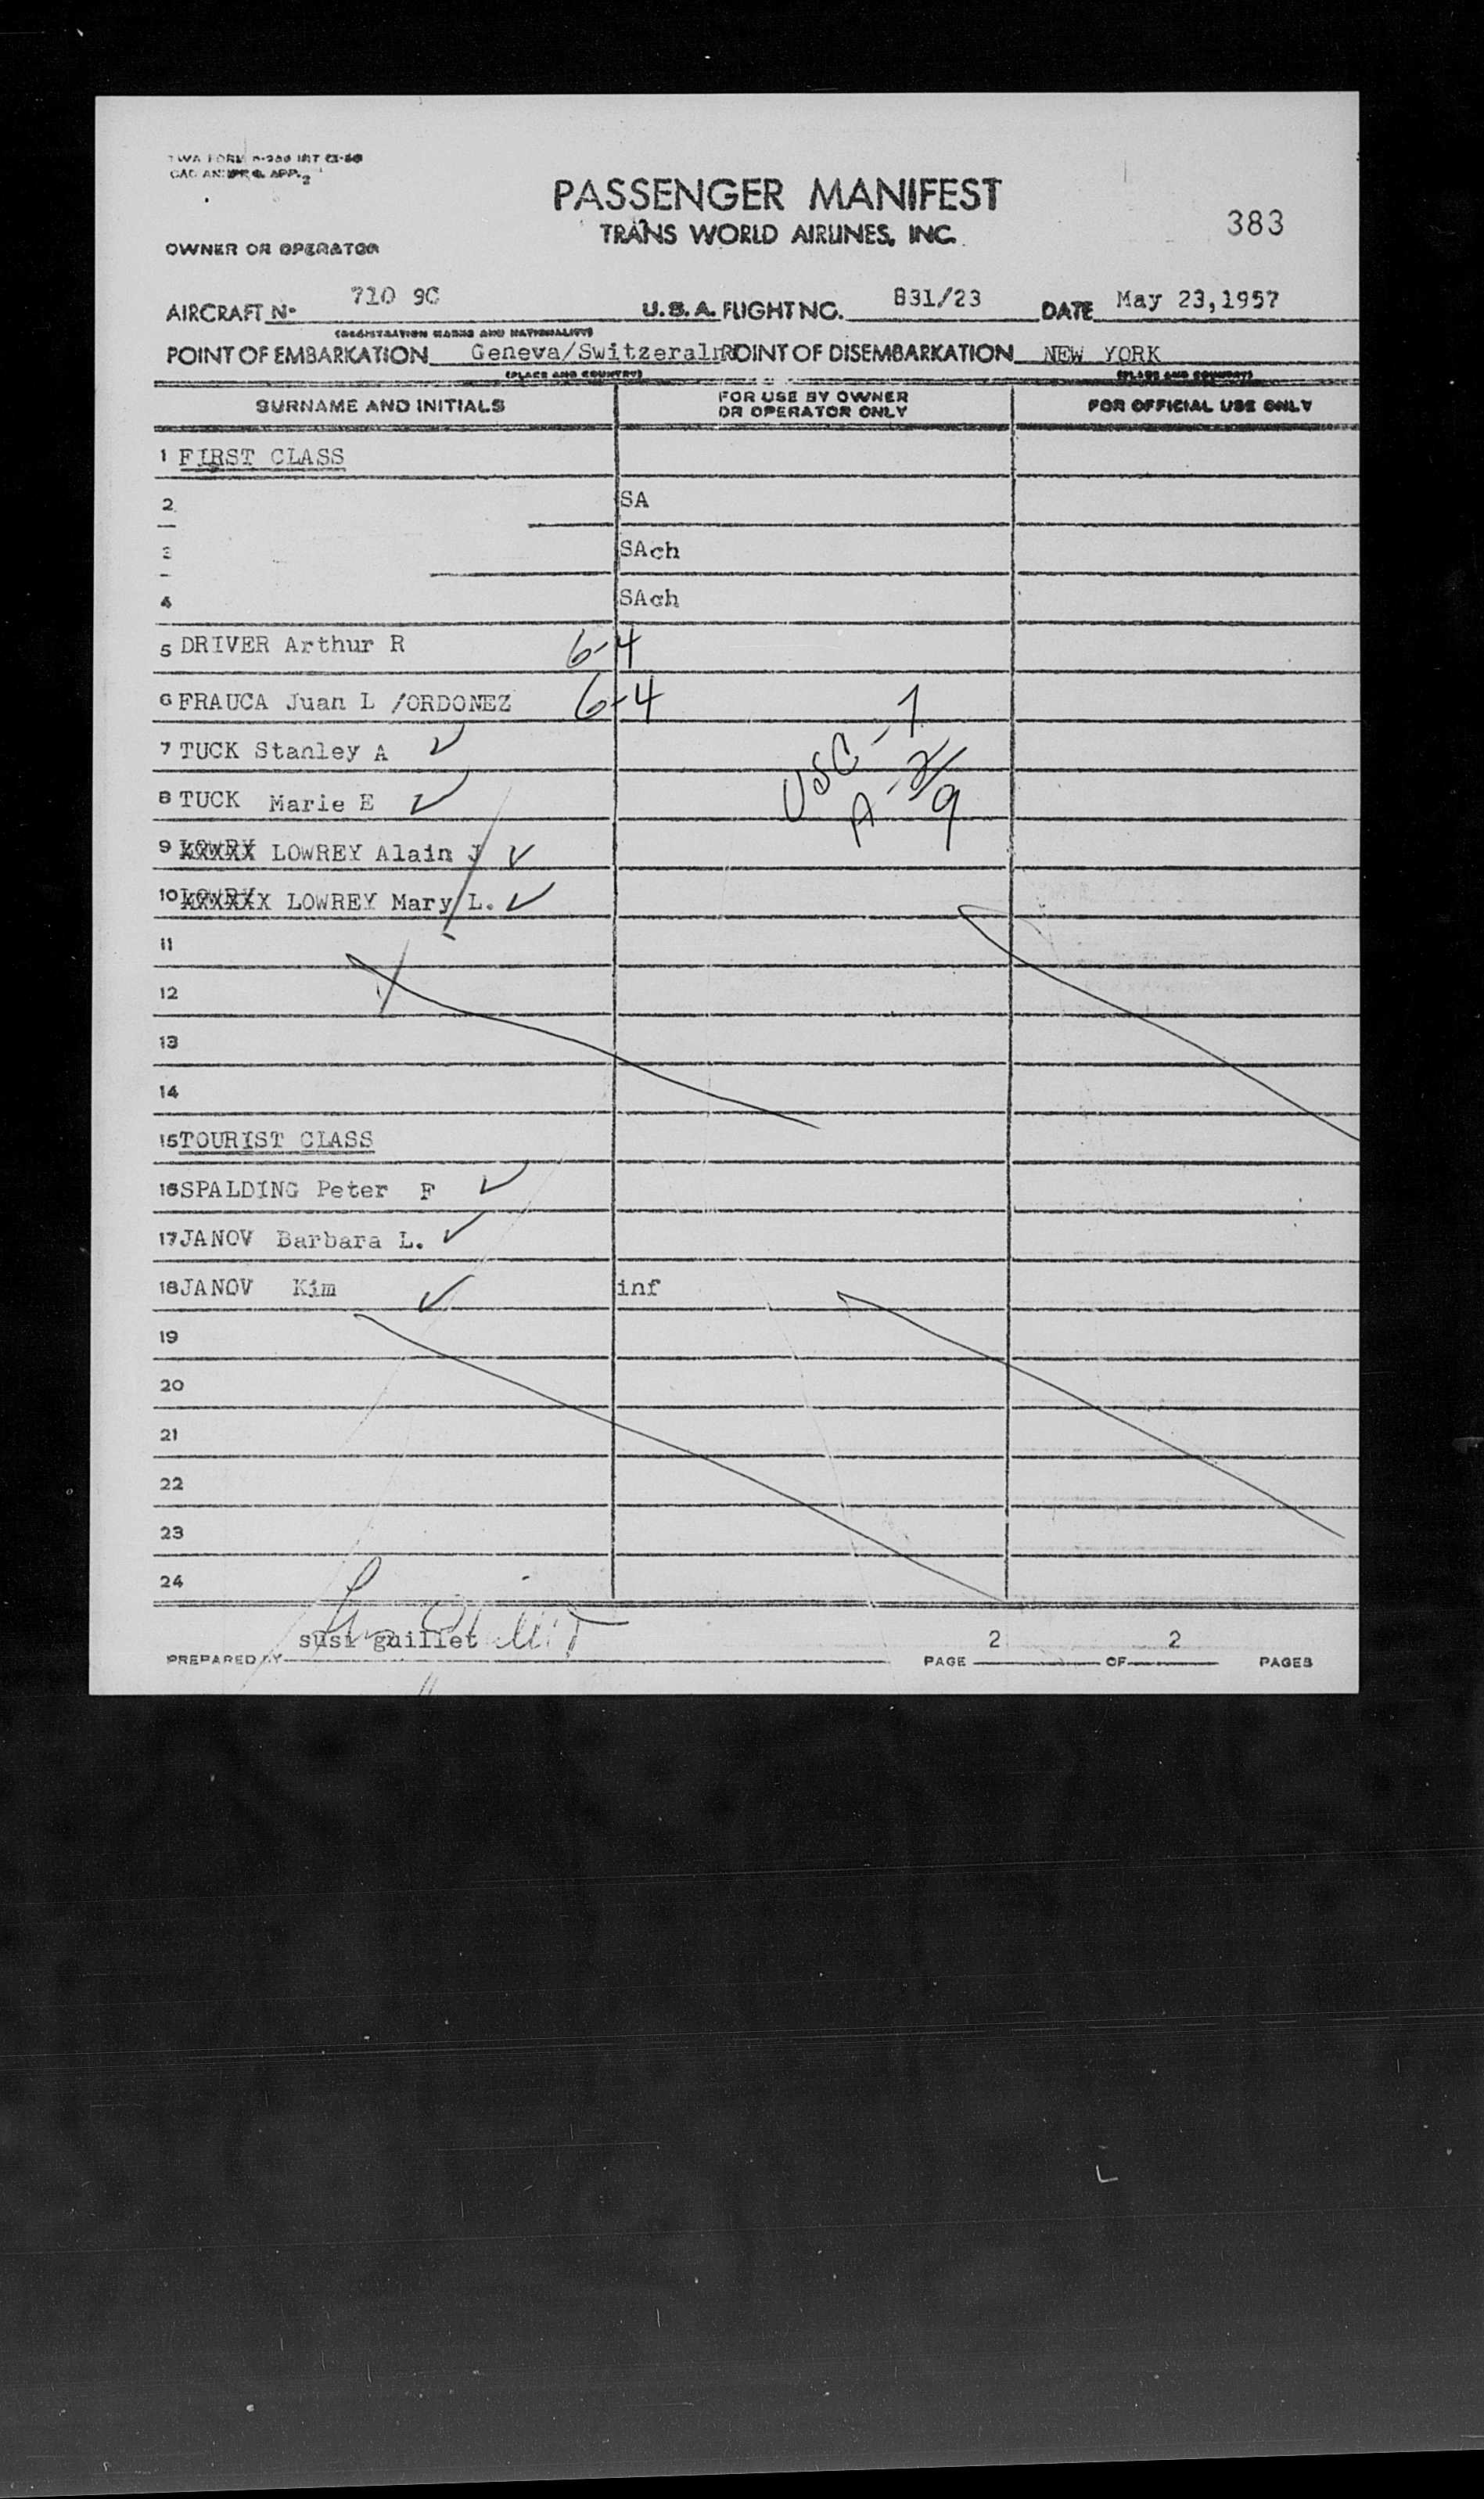 TWA FORM
OWNER OR OPERATOR
PASSENGER MANIFEST
TRANS WORLD AIRLINES, INC.
383
AIRCRAFT No 710 9C U.S.A. FLIGHT NO. 831/23 DATE May 23,1957
(REGISTRATION MARKS AND NATIONALITY)
POINT OF EMBARKATION Geneva/Switzeraln POINT OF DISEMBARKATION NEW YORK
(PLACE AND COUNTRY) (PLACE AND COUNTRY)
SURNAME AND INITIALS FOR USE BY OWNER OR OPERATOR ONLY FOR OFFICIAL USE ONLY
1 FIRST CLASS
2 SA
3 SAch
4 SAch
5 DRIVER Arthur R 6-4
6 FRAUCA Juan L /ORDONEZ 6-4
USC - 7
7 TUCK Stanley A
A - 2/9
8 TUCK Marie E
9 LOWRY LOWREY Alain J
10 LOWRY LOWREY Mary L.
11
12
13
14
15 TOURIST CLASS
16 SPALDING Peter F
17 JANOV Barbara L.
18 JANOV Kim inf
19
20
21
22
23
24
PREPARED BY susi guillet PAGE 2 OF 2 PAGES